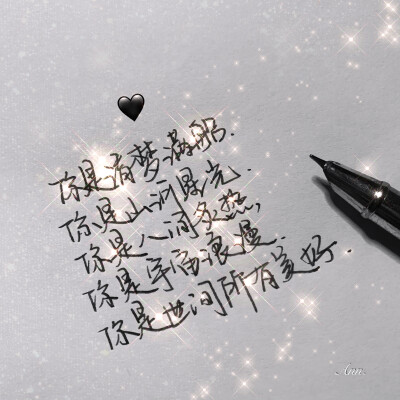 你是清梦满船.
你是山涧晨光.
你是人间炙热,
你是宇宙浪漫.
你是世间所有美好.
Ann.